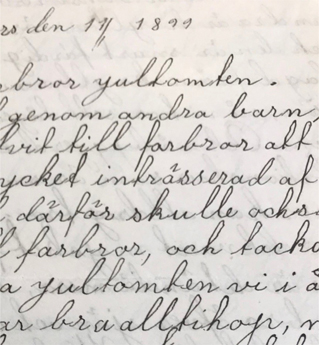 rs den 17/ 1899
rbror yultomten.
genom andra barn,
vit till farbror att
ycket inträsserad af
därför skulle ochs
l farbror, och tacka
a yultomten vi i å
ar bra alltihop, n